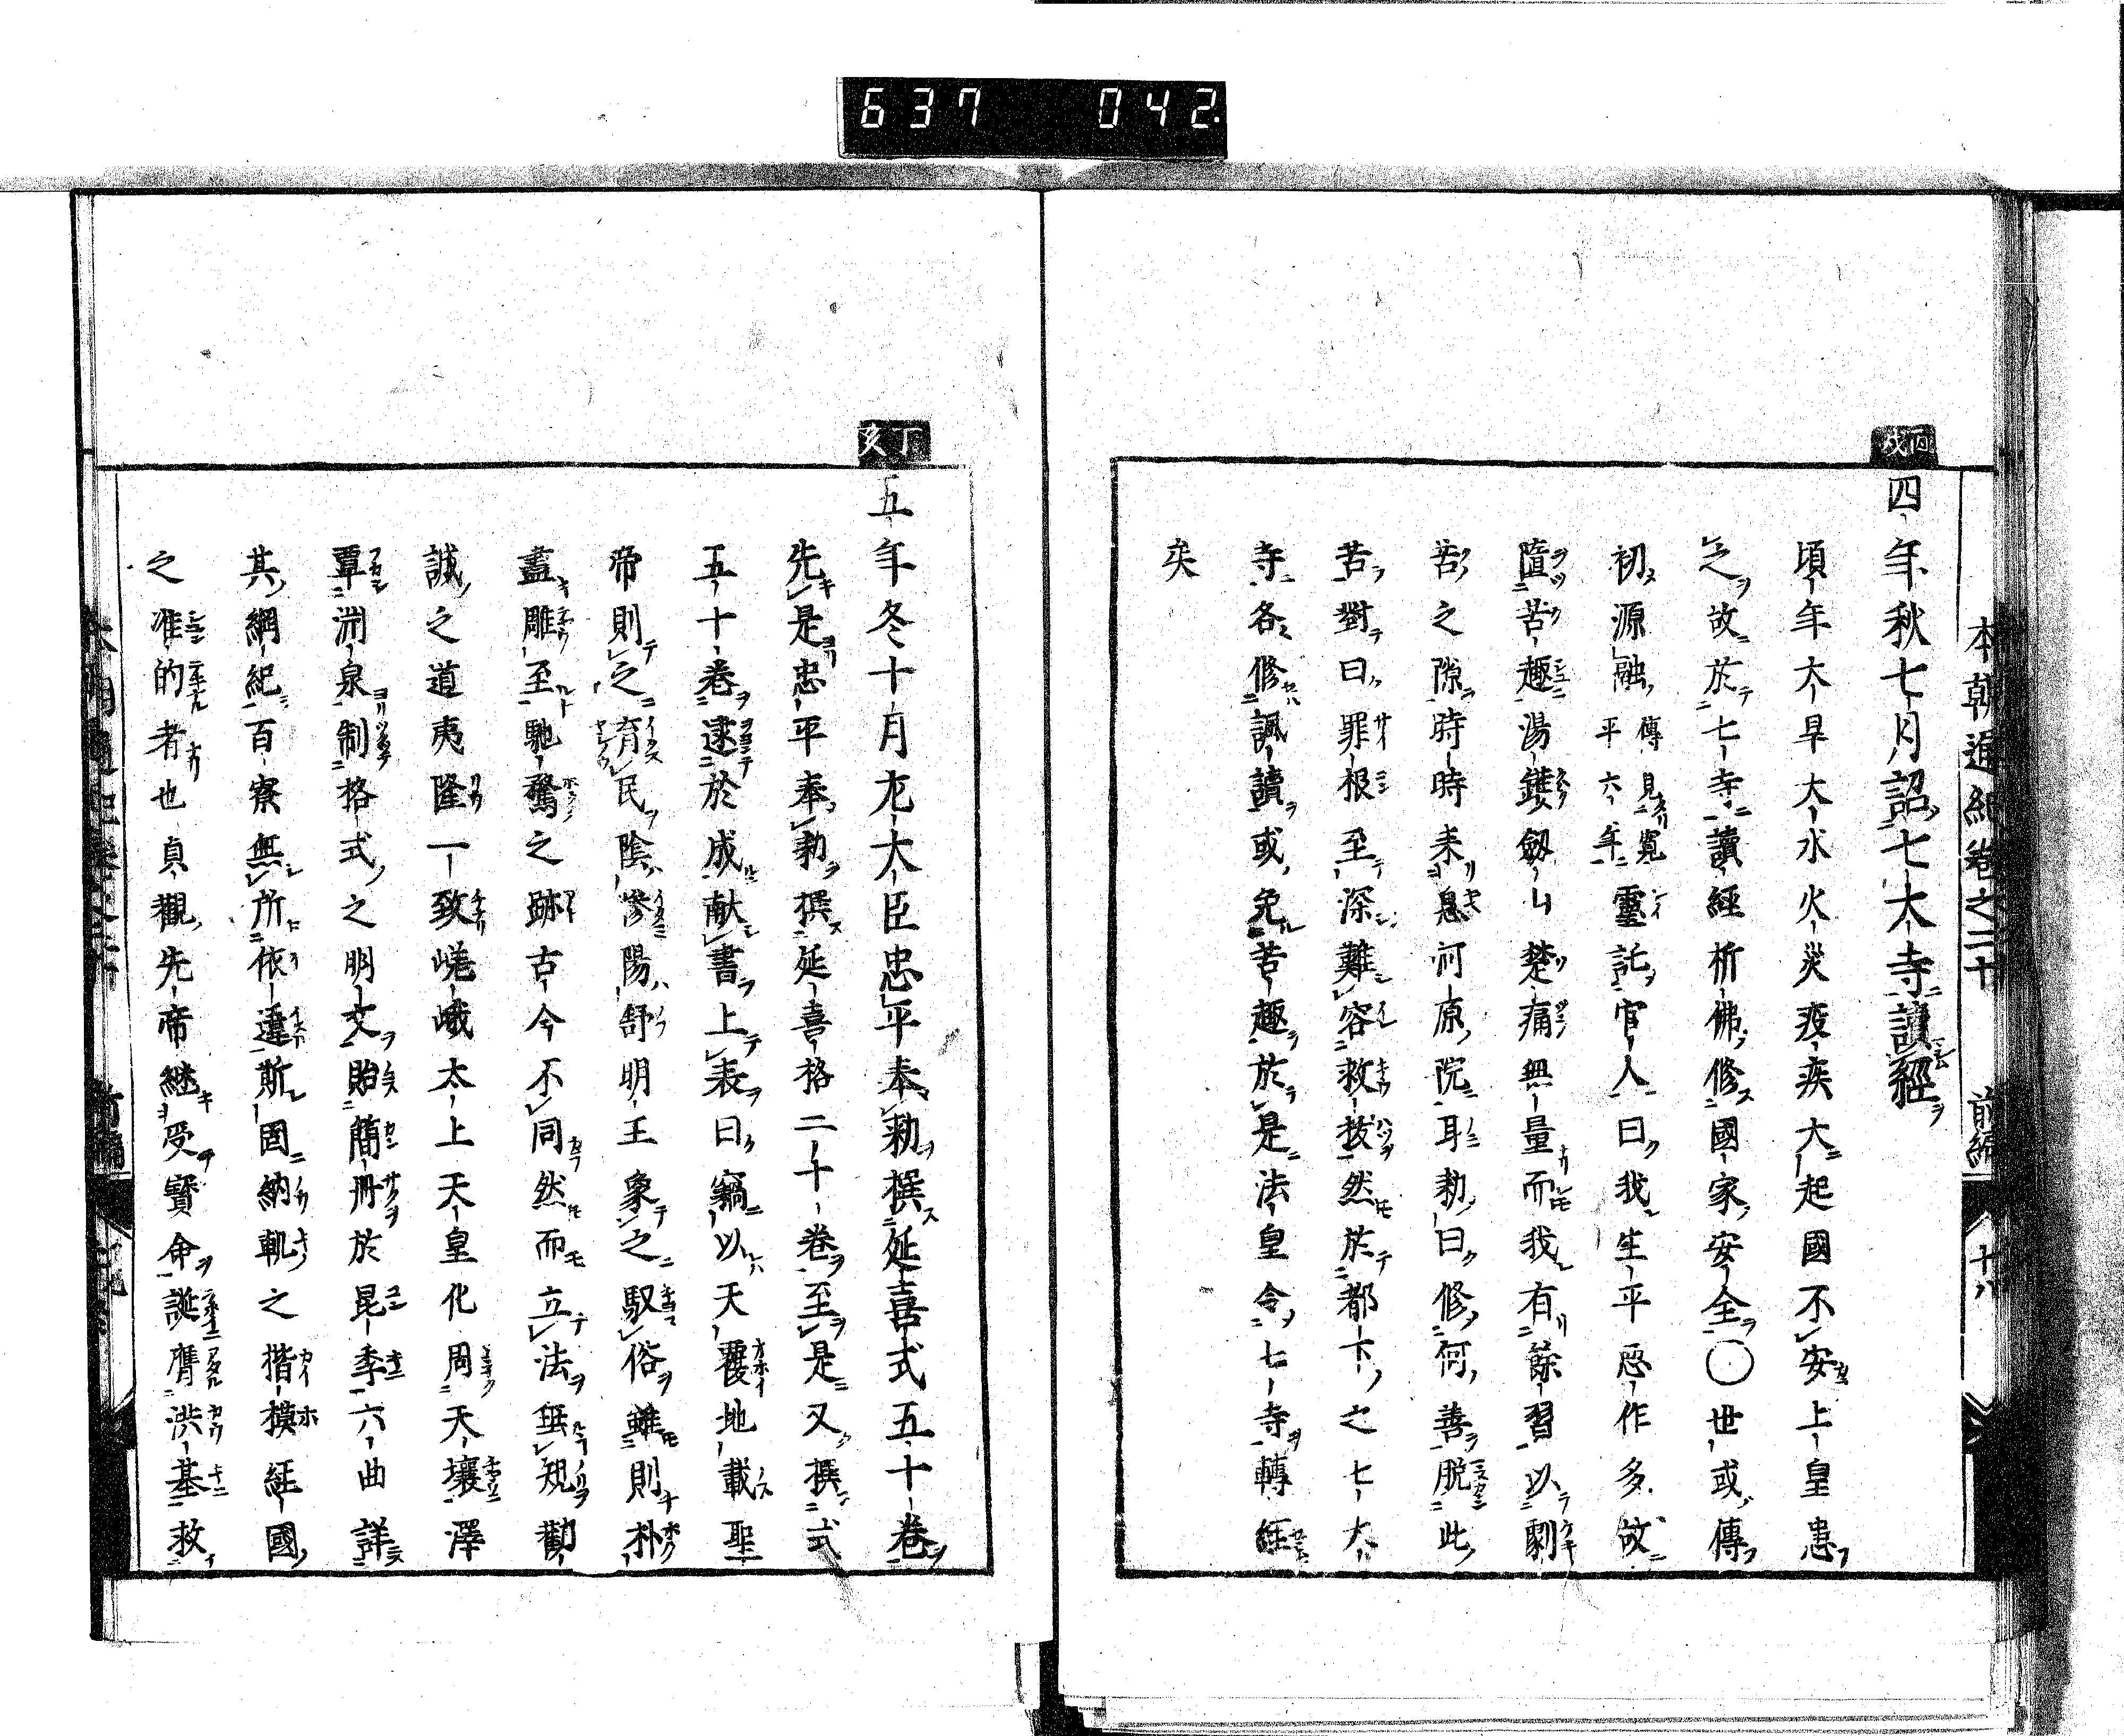 637 042.
本朝通紀卷之二十 前編 十八
丙戌
四年秋七月詔七大寺讀經
頃年大旱大水火災疫疾大起國不安上皇患
之故於七寺讀經祈佛修國家安全○世或傳
初源融傳見寬平六年靈託官人曰我生平惡作多故
墮苦趣湯鑊劔山楚痛無量而我有餘習以劇
苦之隙時時来息河原院耳勅曰修何善脱此
苦對曰罪根至深難容救拔然於都下之七大
寺各修諷讀或免苦趣於是法皇令七寺轉經
矣
丁亥
五年冬十月左大臣忠平奉勅撰延喜式五十卷
先是忠平奉勅撰延喜格二十卷至是又撰式
五十卷逮於成献書上表曰竊以天覆地載聖
帝則之育民陰慘陽舒明王象之馭俗雖則朴
盡雕至馳騖之跡古今不同然而立法垂規勸
誡之道夷隆一致嵯峨太上天皇化周天壤澤
覃淵泉制格式之明文貽簡冊於昆季六曲詳
其綱紀百寮無所依違斯固納軌之揩模経國
之准的者也貞觀先帝継受寶命誕膺洪基救